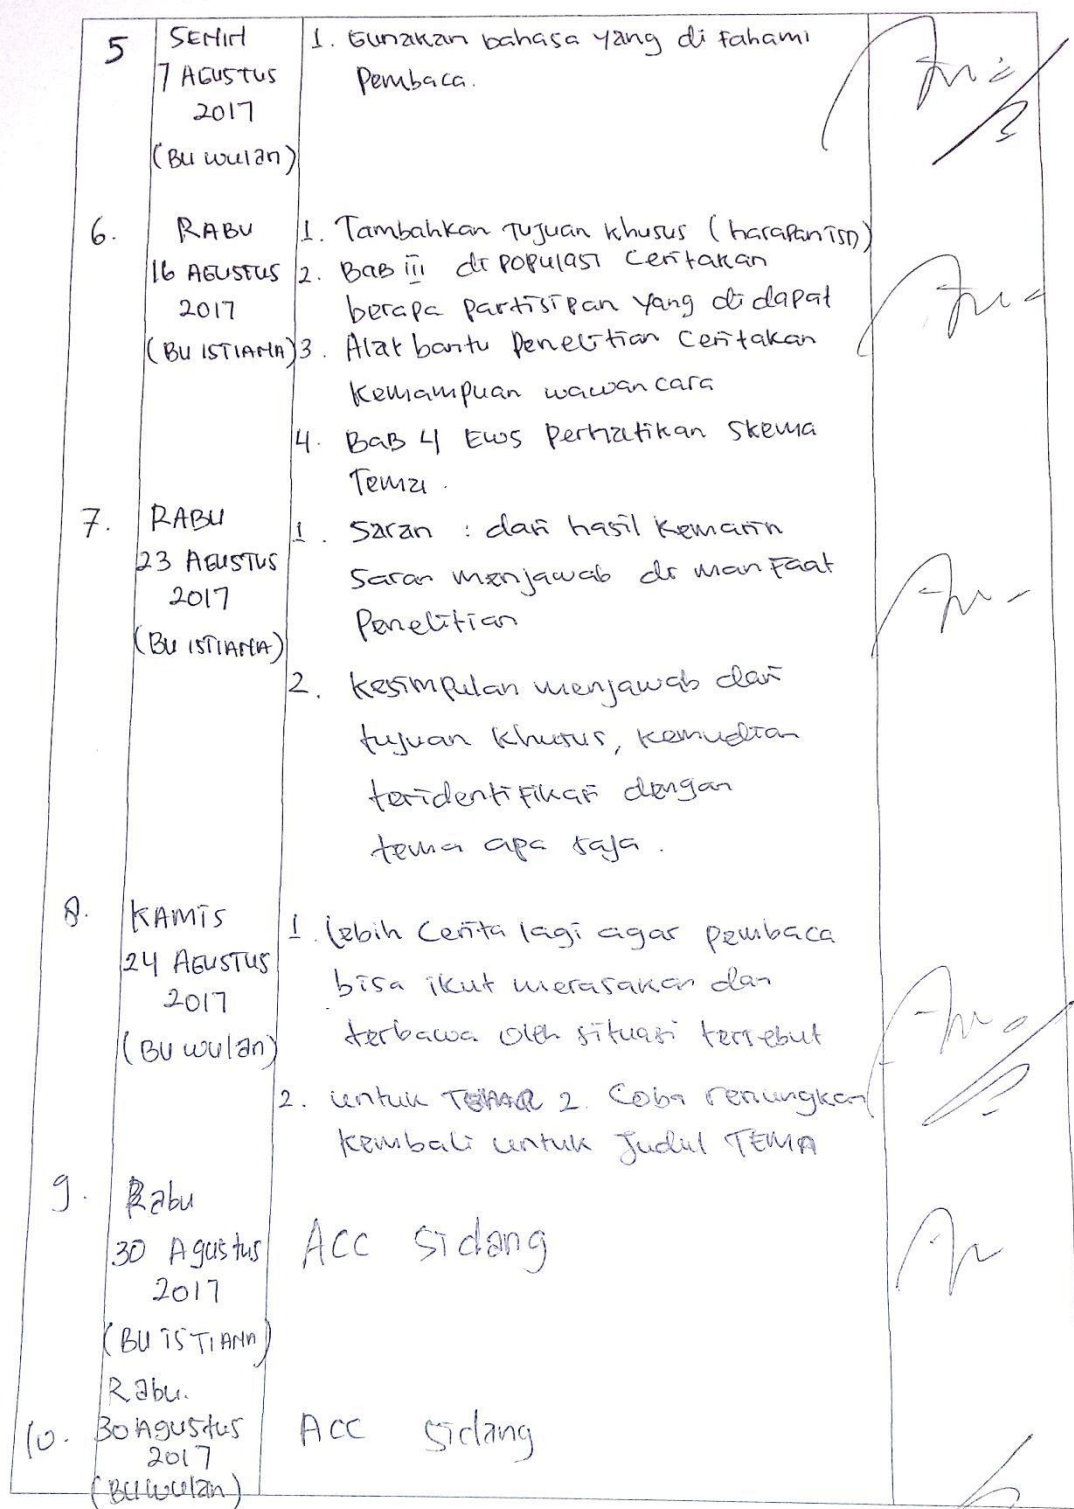 5
SENIN
7 AGUSTUS
2017
(BU wulan)
1. Gunakan bahasa yang di fahami
Pembaca.
6.
RABU
16 AGUSTUS
2017
(BU ISTIANA)
1. Tambahkan Tujuan Khusus (harapan isn)
2. BAB iii di populasi Ceritakan
berapa partisipan yang di dapat
3. Alat bantu Penelitian Ceritakan
Kemampuan wawancara
4. BAB 4 EWS Perhatikan Skema
Tema.
7.
RABU
23 AGUSTUS
2017
(BU ISTIANA)
1. Saran : dari hasil Kemarin
Saran menjawab di manfaat
Penelitian
2. Kesimpulan menjawab dari
tujuan Khusus, Kemudian
teridentifikasi dengan
tema apa saja.
8.
KAMIS
24 AGUSTUS
2017
(BU wulan)
1. lebih Cerita lagi agar pembaca
bisa ikut merasakan dan
terbawa oleh situasi tersebut
2. untuk 2. Coba renungkan
Kembali untuk Judul TEMA
9.
Rabu
30 Agustus
2017
(BU ISTIANA)
ACC Sidang
10.
Rabu.
30 Agustus
2017
(BU wulan)
ACC Sidang